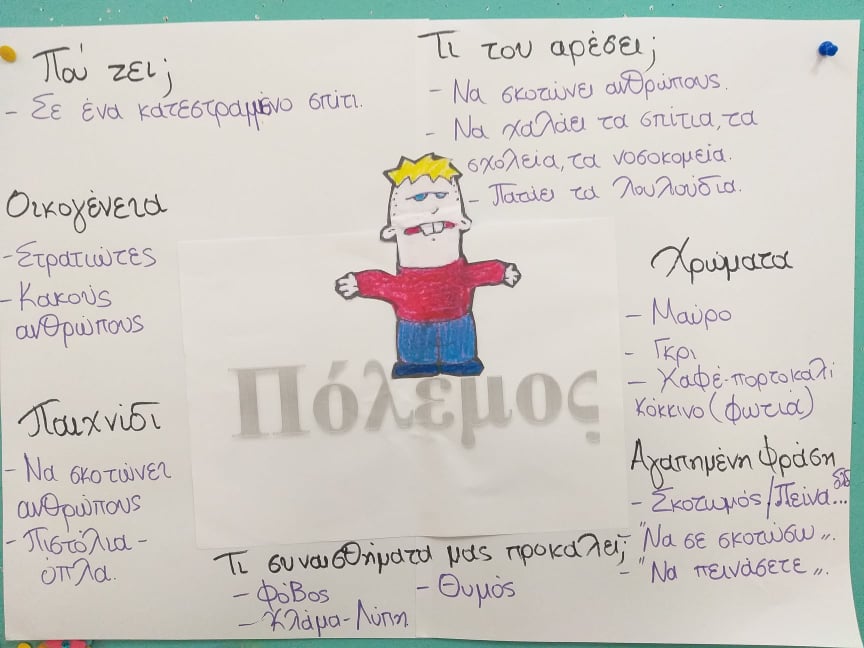 Πού ζει;
- Σε ένα κατεστραμμένο σπίτι.
Τι του αρέσει;
- Να σκοτώνει ανθρώπους.
- Να χαλάει τα σπίτια, τα
σχολεία, τα νοσοκομεία.
- Πατάει τα λουλούδια.
Οικογένεια
- Στρατιώτες
- Κακούς
ανθρώπους
Χρώματα
- Μαύρο
- Γκρι
- Καφέ-πορτοκαλί
κόκκινο (φωτιά)
Πόλεμος
Παιχνίδι
- Να σκοτώνει
ανθρώπους
- Πιστόλια -
όπλα.
Αγαπημένη φράση
- Σκοτωμός/Πείνα...
- "Να σε σκοτώσω".
- "Να πεινάσετε".
Τι συναισθήματα μας προκαλεί;
- Φόβος
- Κλάμα-Λύπη
- Θυμός